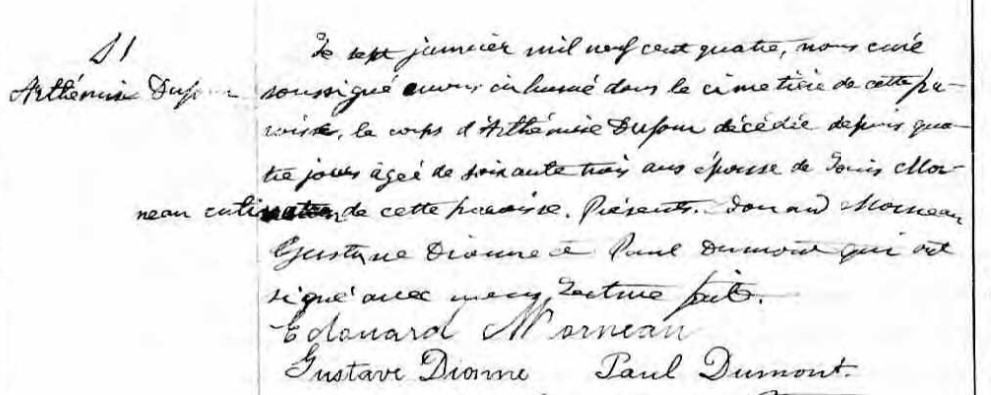 S1
Arthémise Dufour
Le sept janvier mil neuf cent quatre, nous curé
soussigné avons inhumé dans le cimetière de cette pa-
roisse, le corps d'Arthémise Dufour décédée depuis qua-
tre jours âgée de soixante trois ans épouse de Louis Mor-
neau cultivateur de cette paroisse. Présents. Edouard Morneau
Gustave Dionne & Paul Dumont qui ont
signé avec nous, Lecture faite.
Edouard Morneau
Gustave Dionne Paul Dumont.